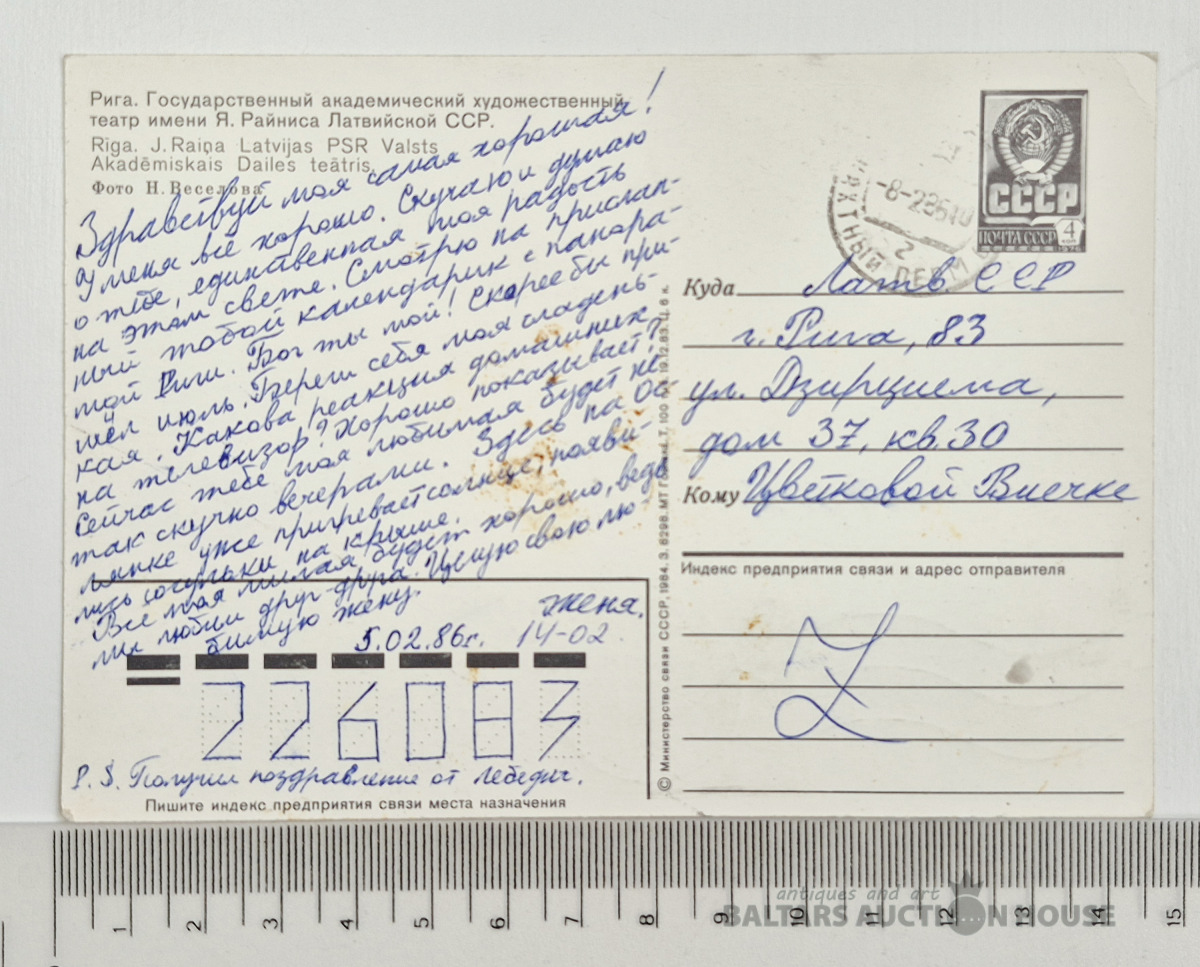 Рига. Государственный академический художественный
театр имени Я. Райниса Латвийской ССР.
Rīga. J. Raiņa Latvijas PSR Valsts
Akadēmiskais Dailes teātris.
Фото Н. Веселова
Здравствуй моя самая хорошая!
У меня всё хорошо. Скучаю и думаю
о тебе, единственная моя радость
на этом свете. Смотрю на прислан-
ный тобой календарик с панора-
мой Риги. Бог ты мой! Скорее бы при-
шёл июль. Береги себя моя сладень-
кая. Какова реакция домашних
на телевизор? Хорошо показывает?
Сейчас тебе моя любимая будет не
так скучно вечерами. Здесь на Ос-
лянке уже пригревает солнце, появи-
лись сосульки на крыше.
Всё моя милая будет хорошо, ведь
мы любим друг-друга. Целую свою лю-
бимую жену.
Женя.
5.02.86г. 14-02
226083
P.S. Получил поздравление от Лебедич.
Пишите индекс предприятия связи места назначения
© Министерство связи СССР, 1984. З. 6298. МТ Гознака. Т. 100 19.12.83. Ц. 6 к.
-8-286
2
СССР
ПОЧТА СССР 4 коп
1976
Куда Латв. ССР
г. Рига, 83
ул. Дзирциема,
дом 37, кв. 30
Кому Цветковой Виечке
Индекс предприятия связи и адрес отправителя
1 2 3 4 5 6 7 8 9 10 11 12 13 14 15
antiques and art
BALTARS AUCTION HOUSE